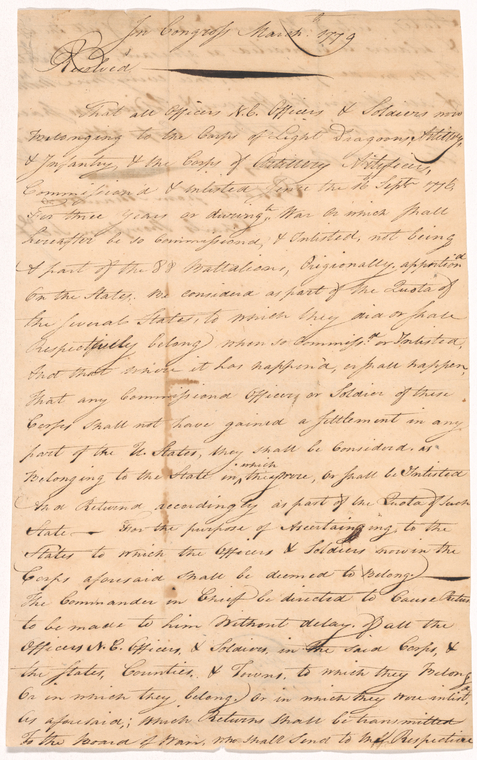 In Congress March th 1779
Resolved
That all Officers N.C. Officers & Soldiers now
Belonging to the Corps of Light Dragoons, Artillery,
& Infantry, & the Corps of Artificers,
Commissiond & Inlisted Since the 16 Sept 1776
For three years or during th War Or which Shall
hereafter be so Commissiond, & Inlisted, not being
A part of the 88 Battalions, Origionally, apportiond
On the States, be considerd as part of the Quota of
the several States, to which they did or shall
Respectfully belong when so Commissd or Inlisted,
And that where it has happend, or shall happen,
That any Commissiond Officer, or Soldier of these
Corps Shall not have gained a Settlement in any
part of the U. States, they shall be Considerd, as
Belonging to the State in which they were, Or Shall be Inlisted
And Returnd accordingly as part of the Quota of Such
State — For the purpose of Ascertaining, to the
States to which the Officers & Soldiers now in the
Corps aforesaid Shall be deemed to Belong —
The Commander in Chief be directed to Cause Return
to be made to him Without delay, of all the
Officers N.C. Officers, & Soldiers, in the Said Corps, &
the States, Counties, & Towns, to which they Belong
Or in which they belong Or in which they were inlistd
As aforesaid; which Returns Shall be transmitted
To the Board of War, who shall Send to the Respective